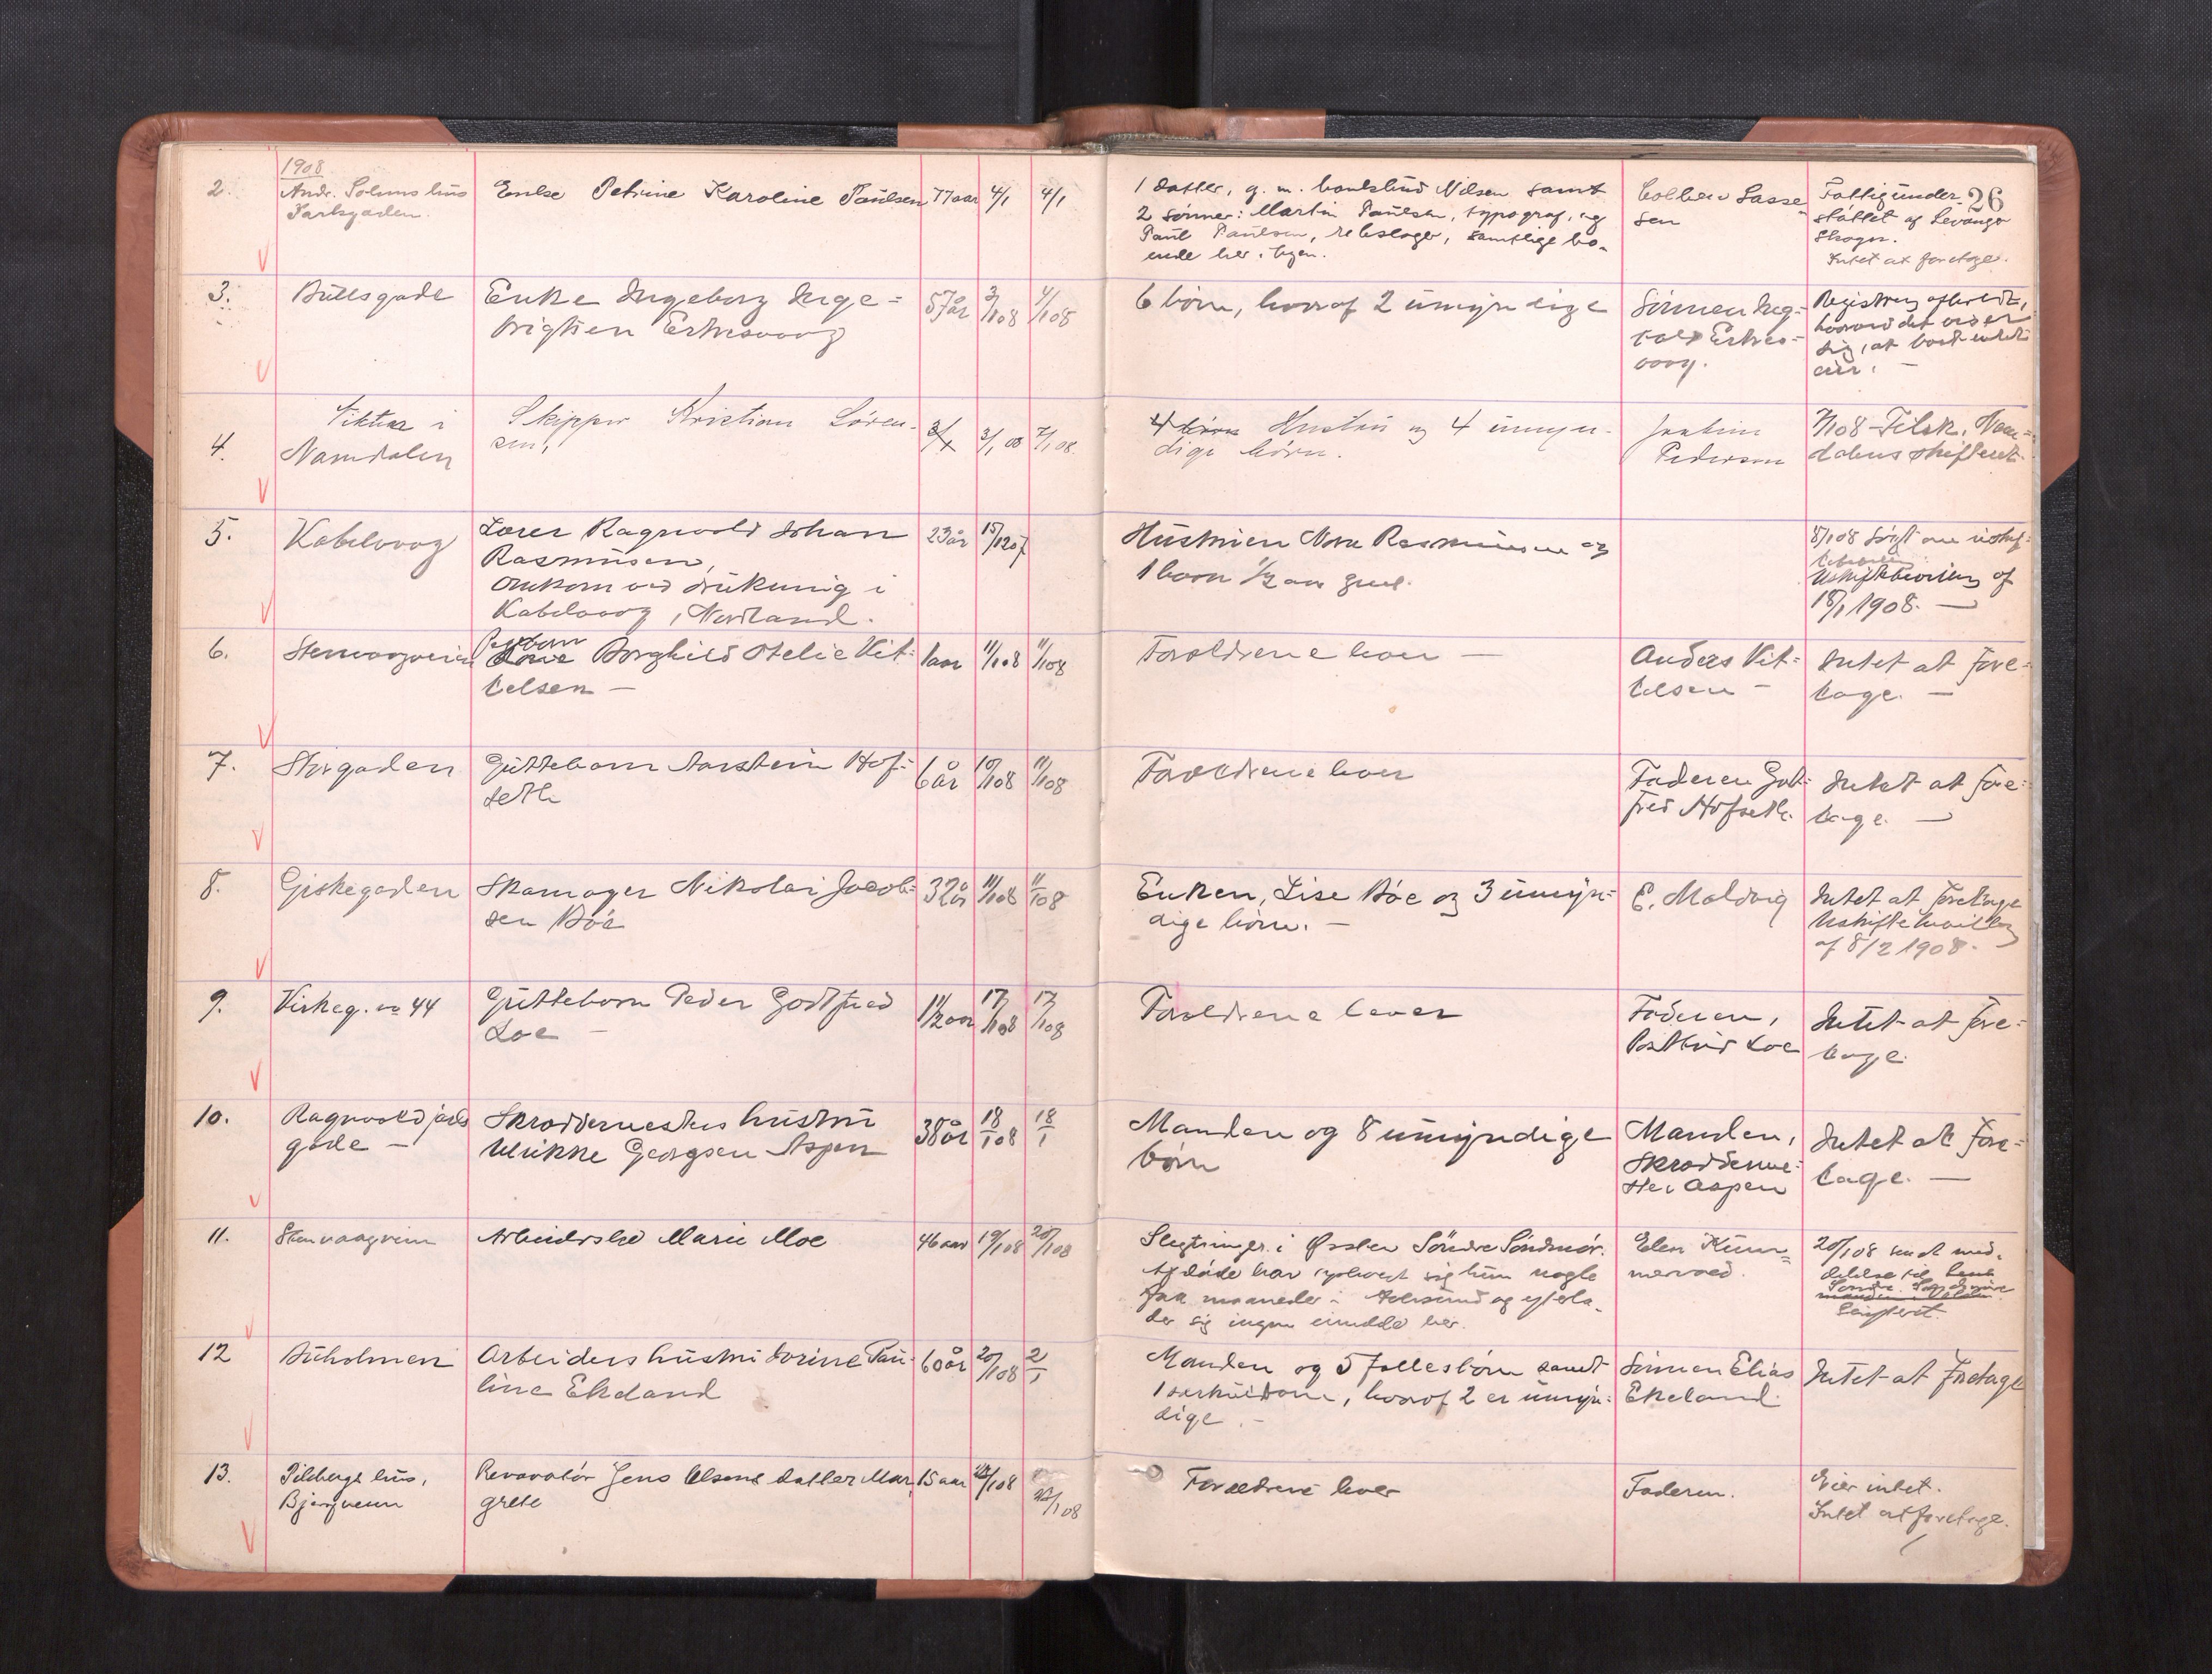 1908
26
2.
Andr. Solems hus
Parkgaden.
Enke Petrine Karoline Paulsen
77 aar
4/1
4/1
1 datter, g. m. Nilsen samt
2 sønner: Martin Paulsen, typograf, og
Paul Paulsen, rebslager, samtlige bo-
ende her i byen.
Lasse-
sen
Fattigunder-
støttet af Levanger
Skogn.
Intet at foretage.
3.
Bullsgade
Enke Ingeborg Inge-
brigtsen
57 år
3/1 08
4/1 08
6 børn, hvoraf 2 umyndige
Sønnen
Registrering afholdt,
hvorved det viser
sig, at boet intet
eier. —
4.
i
Namdalen
Skipper Kristian Søren-
sen,
3/1 08
7/1 08
4 børn Hustru og 4 umyn-
dige børn.
Pedersen
7/1 08 Nam-
dalens skifteret.
5.
Kabelvaag
Lærer Ragnvald Johan
Rasmussen,
omkom ved drukning i
Kabelvaag, Nordland.
23 år
15/12 07
Hustruen Nora Rasmussen og
1 barn 1/2 aar gml.
8/1 08 søgt om uskif-
Uskiftebevilling af
18/1 1908. —
6.
Stenvaagveien
Pigebarn
Borghild Otelie Kit-
telsen —
1 aar
11/1 08
11/1 08
Forældrene lever —
Anders Kit-
telsen —
Intet at fore-
tage. —
7.
Storgaden
Guttebarn Aarstein Hof-
seth
6 år
10/1 08
11/1 08
Forældrene lever
Faderen Got-
fred Hofseth.
Intet at fore-
tage. —
8.
Giskegaden
Skomager Nikolai Jacob-
sen Bøe
32 år
11/1 08
11/1 08
Enken, Lise Bøe og 3 umyn-
dige børn. —
E. Moldvig
Intet at foretage
Uskiftebevilling
af 8/2 1908.
9.
Kirkeg. no 44
Guttebarn Peder Godtfred
Loe —
1 1/2 aar
17/1 08
17/1 08
Forældrene lever
Faderen,
Postbud Loe
Intet at fore-
tage.
10.
Ragnvald jarls
gade —
Skræddermesters hustru
Ulrikke Georgsen Aspen
38 år
18/1 08
18/1
Manden og 8 umyndige
børn
Manden,
Skræderme-
ster Aspen
Intet at fore-
tage. —
11.
Stenvaagveien
Arbeiderske Marie Moe
46 aar
19/1 08
20/1 08
Slegtninger i Ørsten Søndre Søndmør.
Afdøde har opholdt sig kun nogle
faa maaneder i Aalesund og efterla-
der sig ingen her.
Elen
20/1 08 sendt med-
delelse til
Søndre Søndmøre
Skifteret.
12
Buholmen
Arbeiders hustru Dorine Pau-
line Ekeland
60 år
20/1 08
Manden og 5 fællesbørn samt
1 særkuldbarn, hvoraf 2 er umyn-
dige. —
Sønnen Elias
Ekeland.
Intet at foretage
13.
Pilsbergs hus,
Bjørgveien
Jens Olsens datter Mar-
grete
15 aar
22/1 08
22/1 08
Forældrene lever
Faderen.
Eier intet.
Intet at foretage.